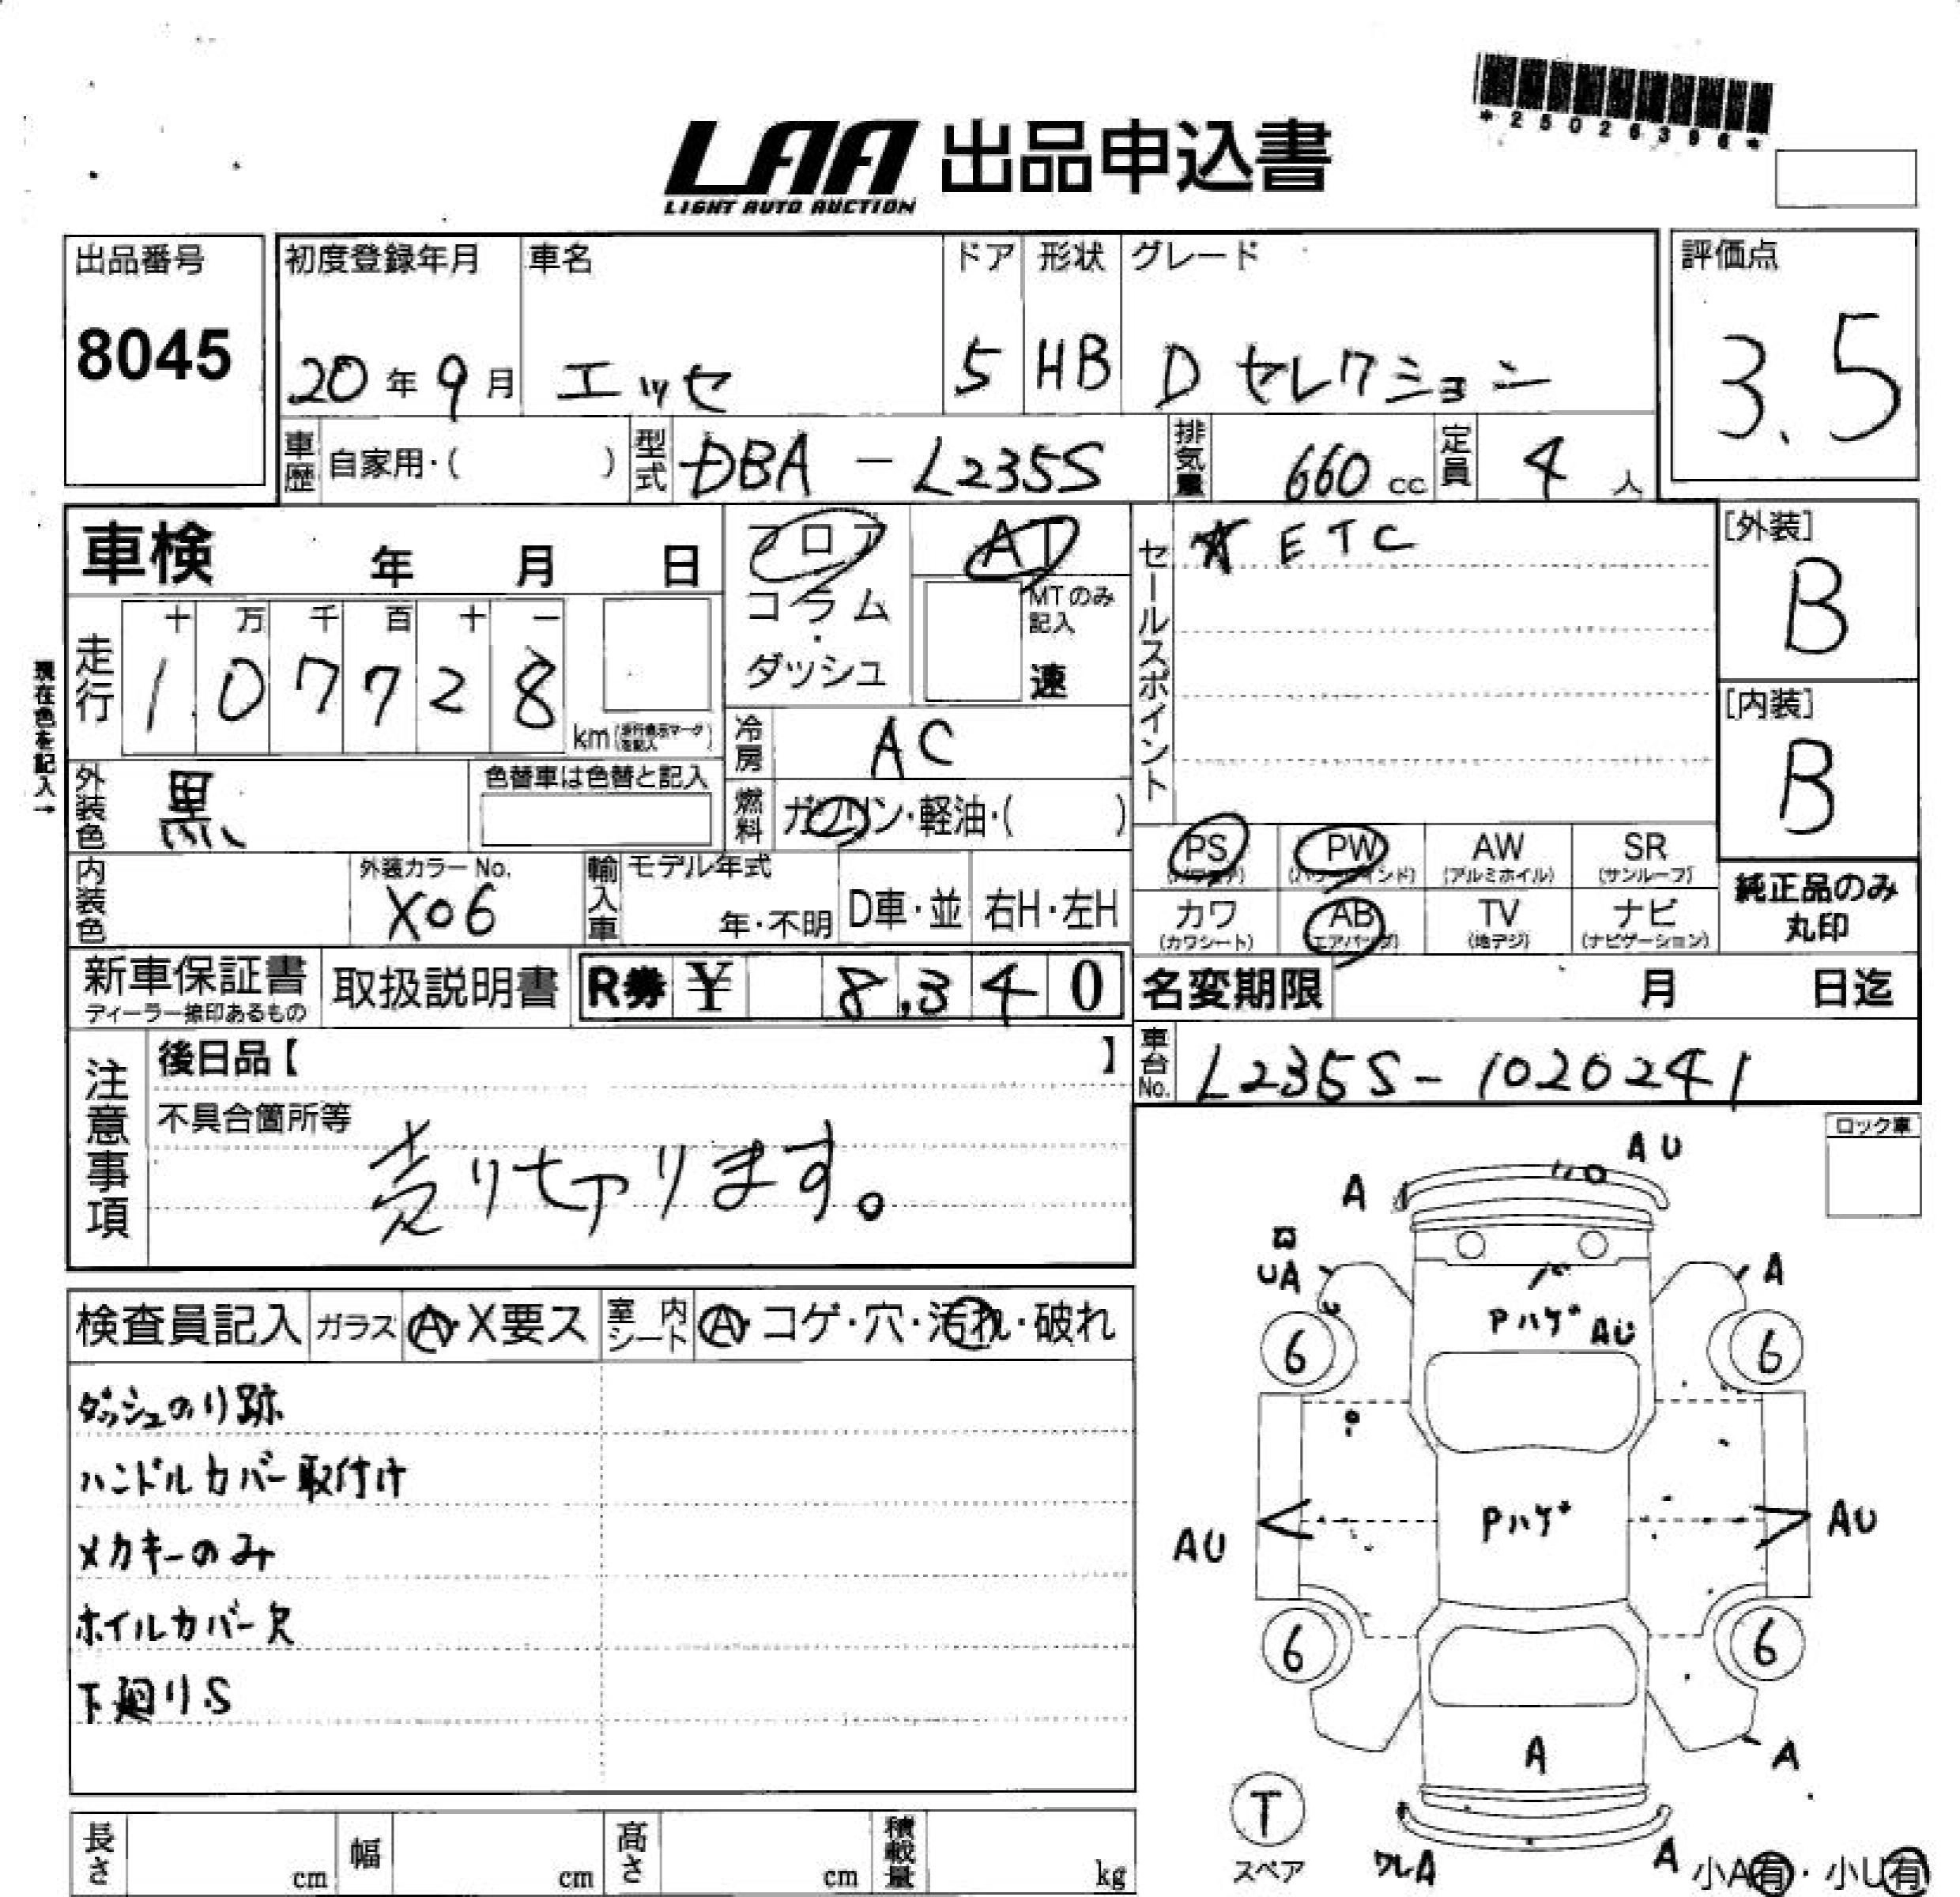 *25026396*
LAA 出品申込書
LIGHT AUTO AUCTION
出品番号
8045
初度登録年月 車名 ドア 形状 グレード
20年9月 エッセ 5 HB Dセレクション
評価点
3.5
車歴 自家用・( ) 型式 DBA-L235S 排気量 660cc 定員 4人
車検 年 月 日
フロア・コラム・ダッシュ
AT
MTのみ記入
速
セールスポイント
★ETC
[外装]
B
[内装]
B
現在色を記入→
走行 十 万 千 百 十 一
107728 km
冷房 AC
外装色 黒 色替車は色替と記入
燃料 ガソリン・軽油・( )
PS PW AW SR
(パワステ) (パワーウインド) (アルミホイル) (サンルーフ)
カワ AB TV ナビ
(カワシート) (エアバッグ) (地デジ) (ナビゲーション)
純正品のみ
丸印
内装色 外装カラーNo. X06
輸入車 モデル年式 年・不明 D車・並 右H・左H
新車保証書 取扱説明書 R券 ¥ 8,340
ディーラー捺印あるもの
名変期限 月 日迄
車台No. L235S-1020241
注意事項
後日品【 】
不具合箇所等
売り切ります。
ロック車
検査員記入 ガラス A・X要ス 室内シート A・コゲ・穴・汚れ・破れ
ダッシュのり跡
ハンドルカバー取付け
メカキーのみ
ホイルカバー欠
下廻り.S
AU
A
UA
A
Pハゲ AU
6 6
Pハゲ
AU AU
6 6
A
A
T
スペア
ワレA
A
小A有・小U有
長さ cm 幅 cm 高さ cm 積載量 kg